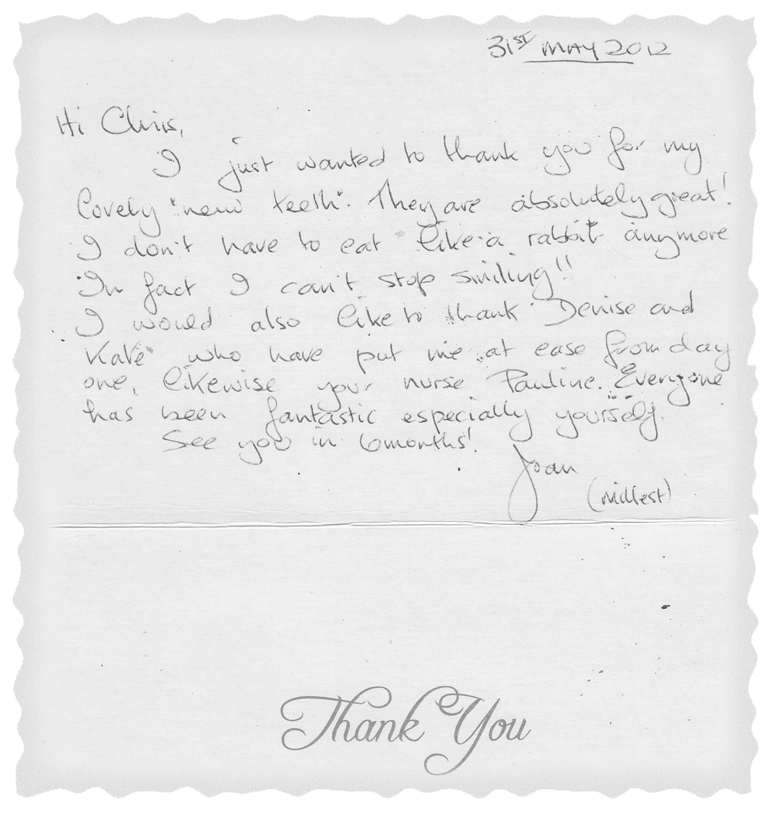 31ST MAY 2012
Hi Chris,
I just wanted to thank you for my
lovely "new teeth". They are absolutely great!
I don't have to eat like a rabbit anymore
In fact I can't stop smiling!!
I would also like to thank Denise and
Kate who have put me at ease from day
one, likewise your nurse Pauline. Everyone
has been fantastic especially yourself.
See you in 6months!
Joan
Thank You